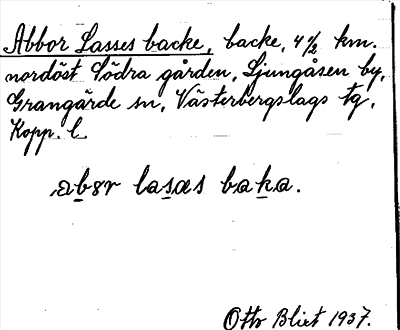 Abbor Lasses backe, backe, 4 1/2 km.
nordöst Södra gården, Ljungåsen by,
Grangärde sn, Västerbergslags tg,
Kopp. l.
abər lasæs baka.
Otto Blixt 1937.